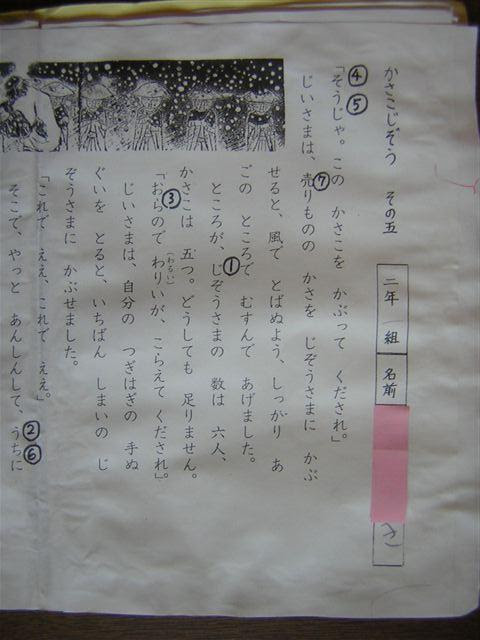 かさこじぞう その五
二年 組 名前 き
④⑤
「そうじゃ。この かさこを かぶって くだされ。」
⑦
じいさまは、売りものの かさを じぞうさまに かぶ
せると、風で とばぬよう、しっかり あ
ごの ところで むすんで あげました。
①
ところが、じぞうさまの 数は 六人、
かさこは 五つ。どうしても 足りません。
③
「おらので わりいが、こらえて くだされ。」
(わるい)
じいさまは、自分の つぎはぎの 手ぬ
ぐいを とると、いちばん しまいの じ
ぞうさまに かぶせました。
「これで ええ、これで ええ。」
②⑥
そこで、やっと あんしんして、うちに